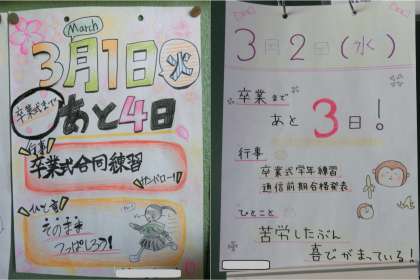 March
3月1日火
卒業式まで
あと4日
行事
卒業式合同練習
ひと言
そのまま
つっぱしろう!
3月2日(水)
卒業まで
あと
3日!
行事
卒業式学年練習
通信前期合格発表
ひとこと
苦労したぶん
喜びがまっている!